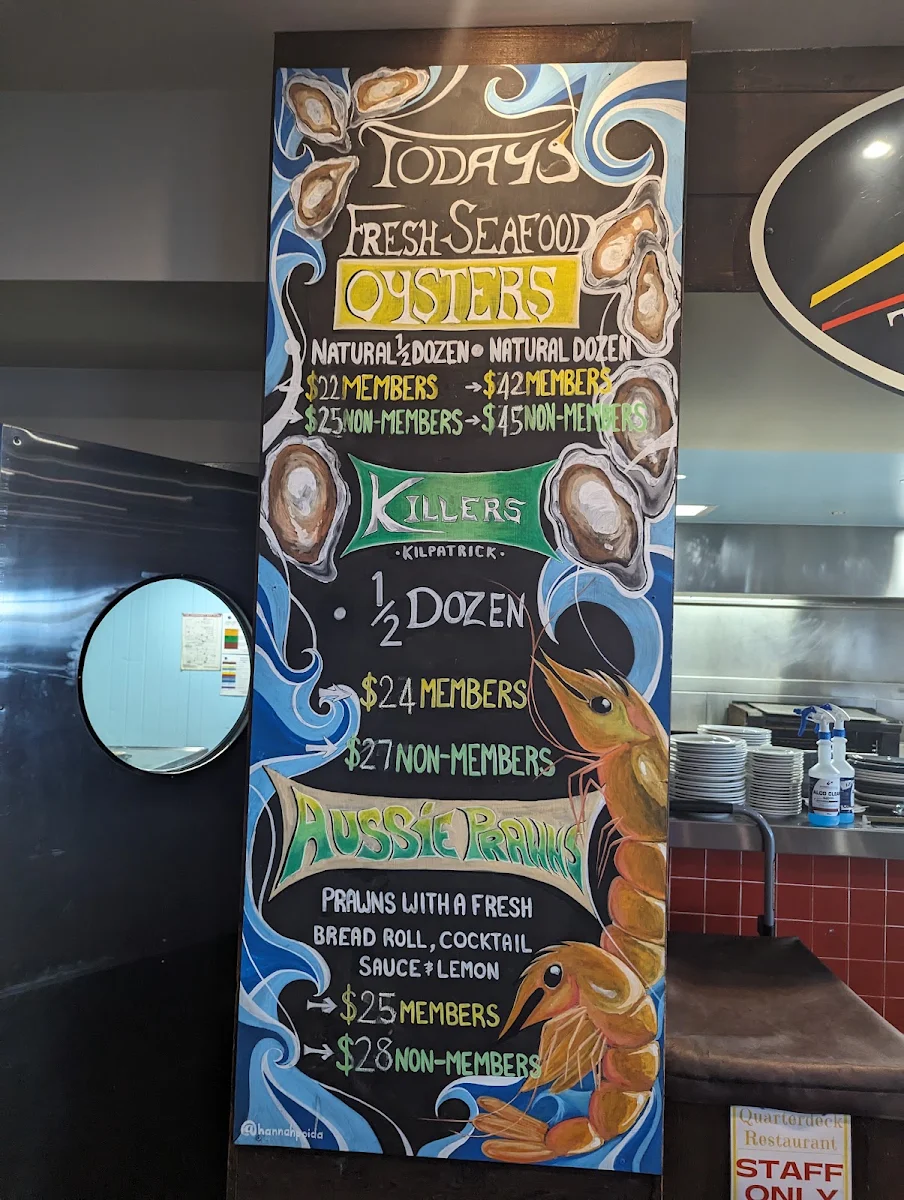 TODAYS
FRESH SEAFOOD
OYSTERS
NATURAL 1/2 DOZEN • NATURAL DOZEN
$22 MEMBERS → $42 MEMBERS
→ $25 NON-MEMBERS → $45 NON-MEMBERS
KILLERS
• KILPATRICK •
• 1/2 DOZEN
→ $24 MEMBERS
→ $27 NON-MEMBERS
AUSSIE PRAWNS
PRAWNS WITH A FRESH
BREAD ROLL, COCKTAIL
SAUCE & LEMON
→ $25 MEMBERS
→ $28 NON-MEMBERS
@hannahpoida
Quarterdeck
Restaurant
STAFF
ONLY